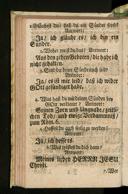 1 Glaubest du, daß du ein Sünder seyest?
Antwort:
Ja, ich glaube es, ich bin ein
Sünder.
2 Woher weist du das? Antwort:
Aus den zehen Geboten, die habe ich
nicht gehalten.
3 Sind dir deine Sünden auch leid?
Antwort:
Ja, es ist mir leid, daß ich wider
GOtt gesündiget habe.
4 Was hast du mit deinen Sünden bey
GOtt verdienet? Antwort:
Seinen Zorn und Ungnade, zeitli-
chen Tod, und ewige Verdammniß,
Röm. 6.
5 Hoffest du auch selig zu werden?
Antwort:
Ja, ich hoffe es.
6 Weß tröstest du dich dann?
Antwort:
Meines lieben HERRN JESU
Christi.